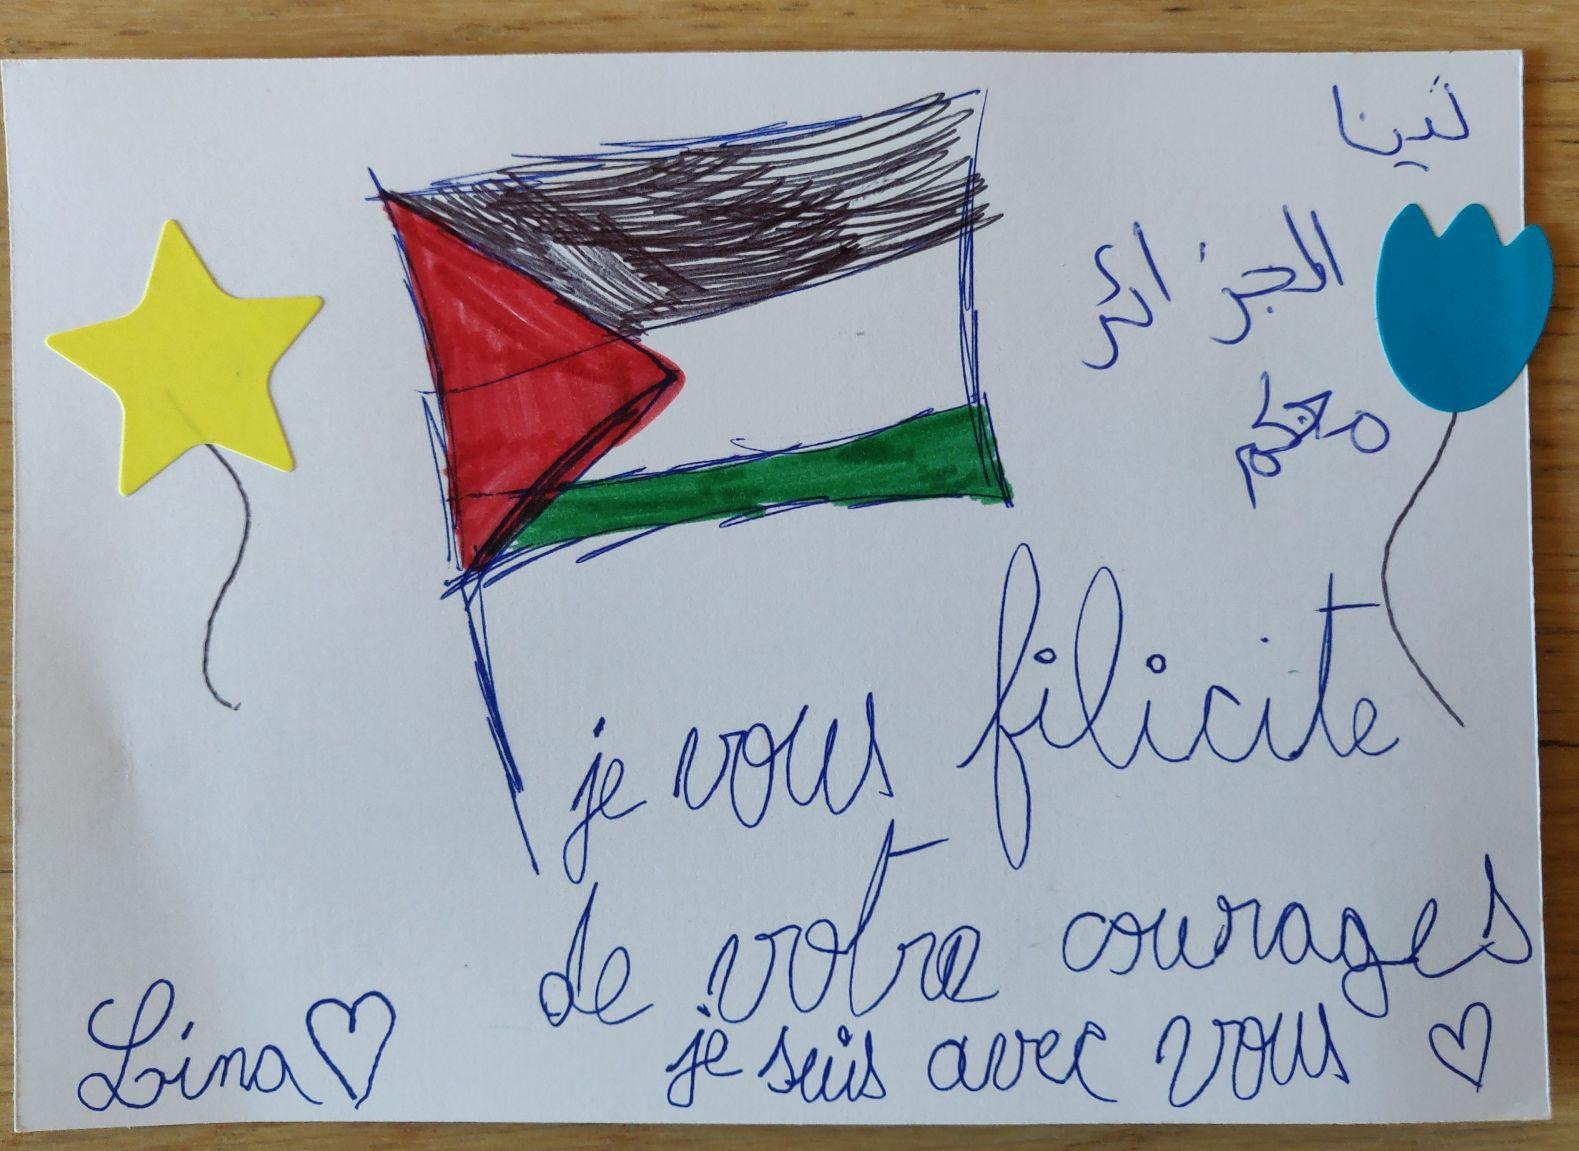 لينا
الجزائر
معكم
je vous filicite
de votre courages
je suis avec vous
Lina